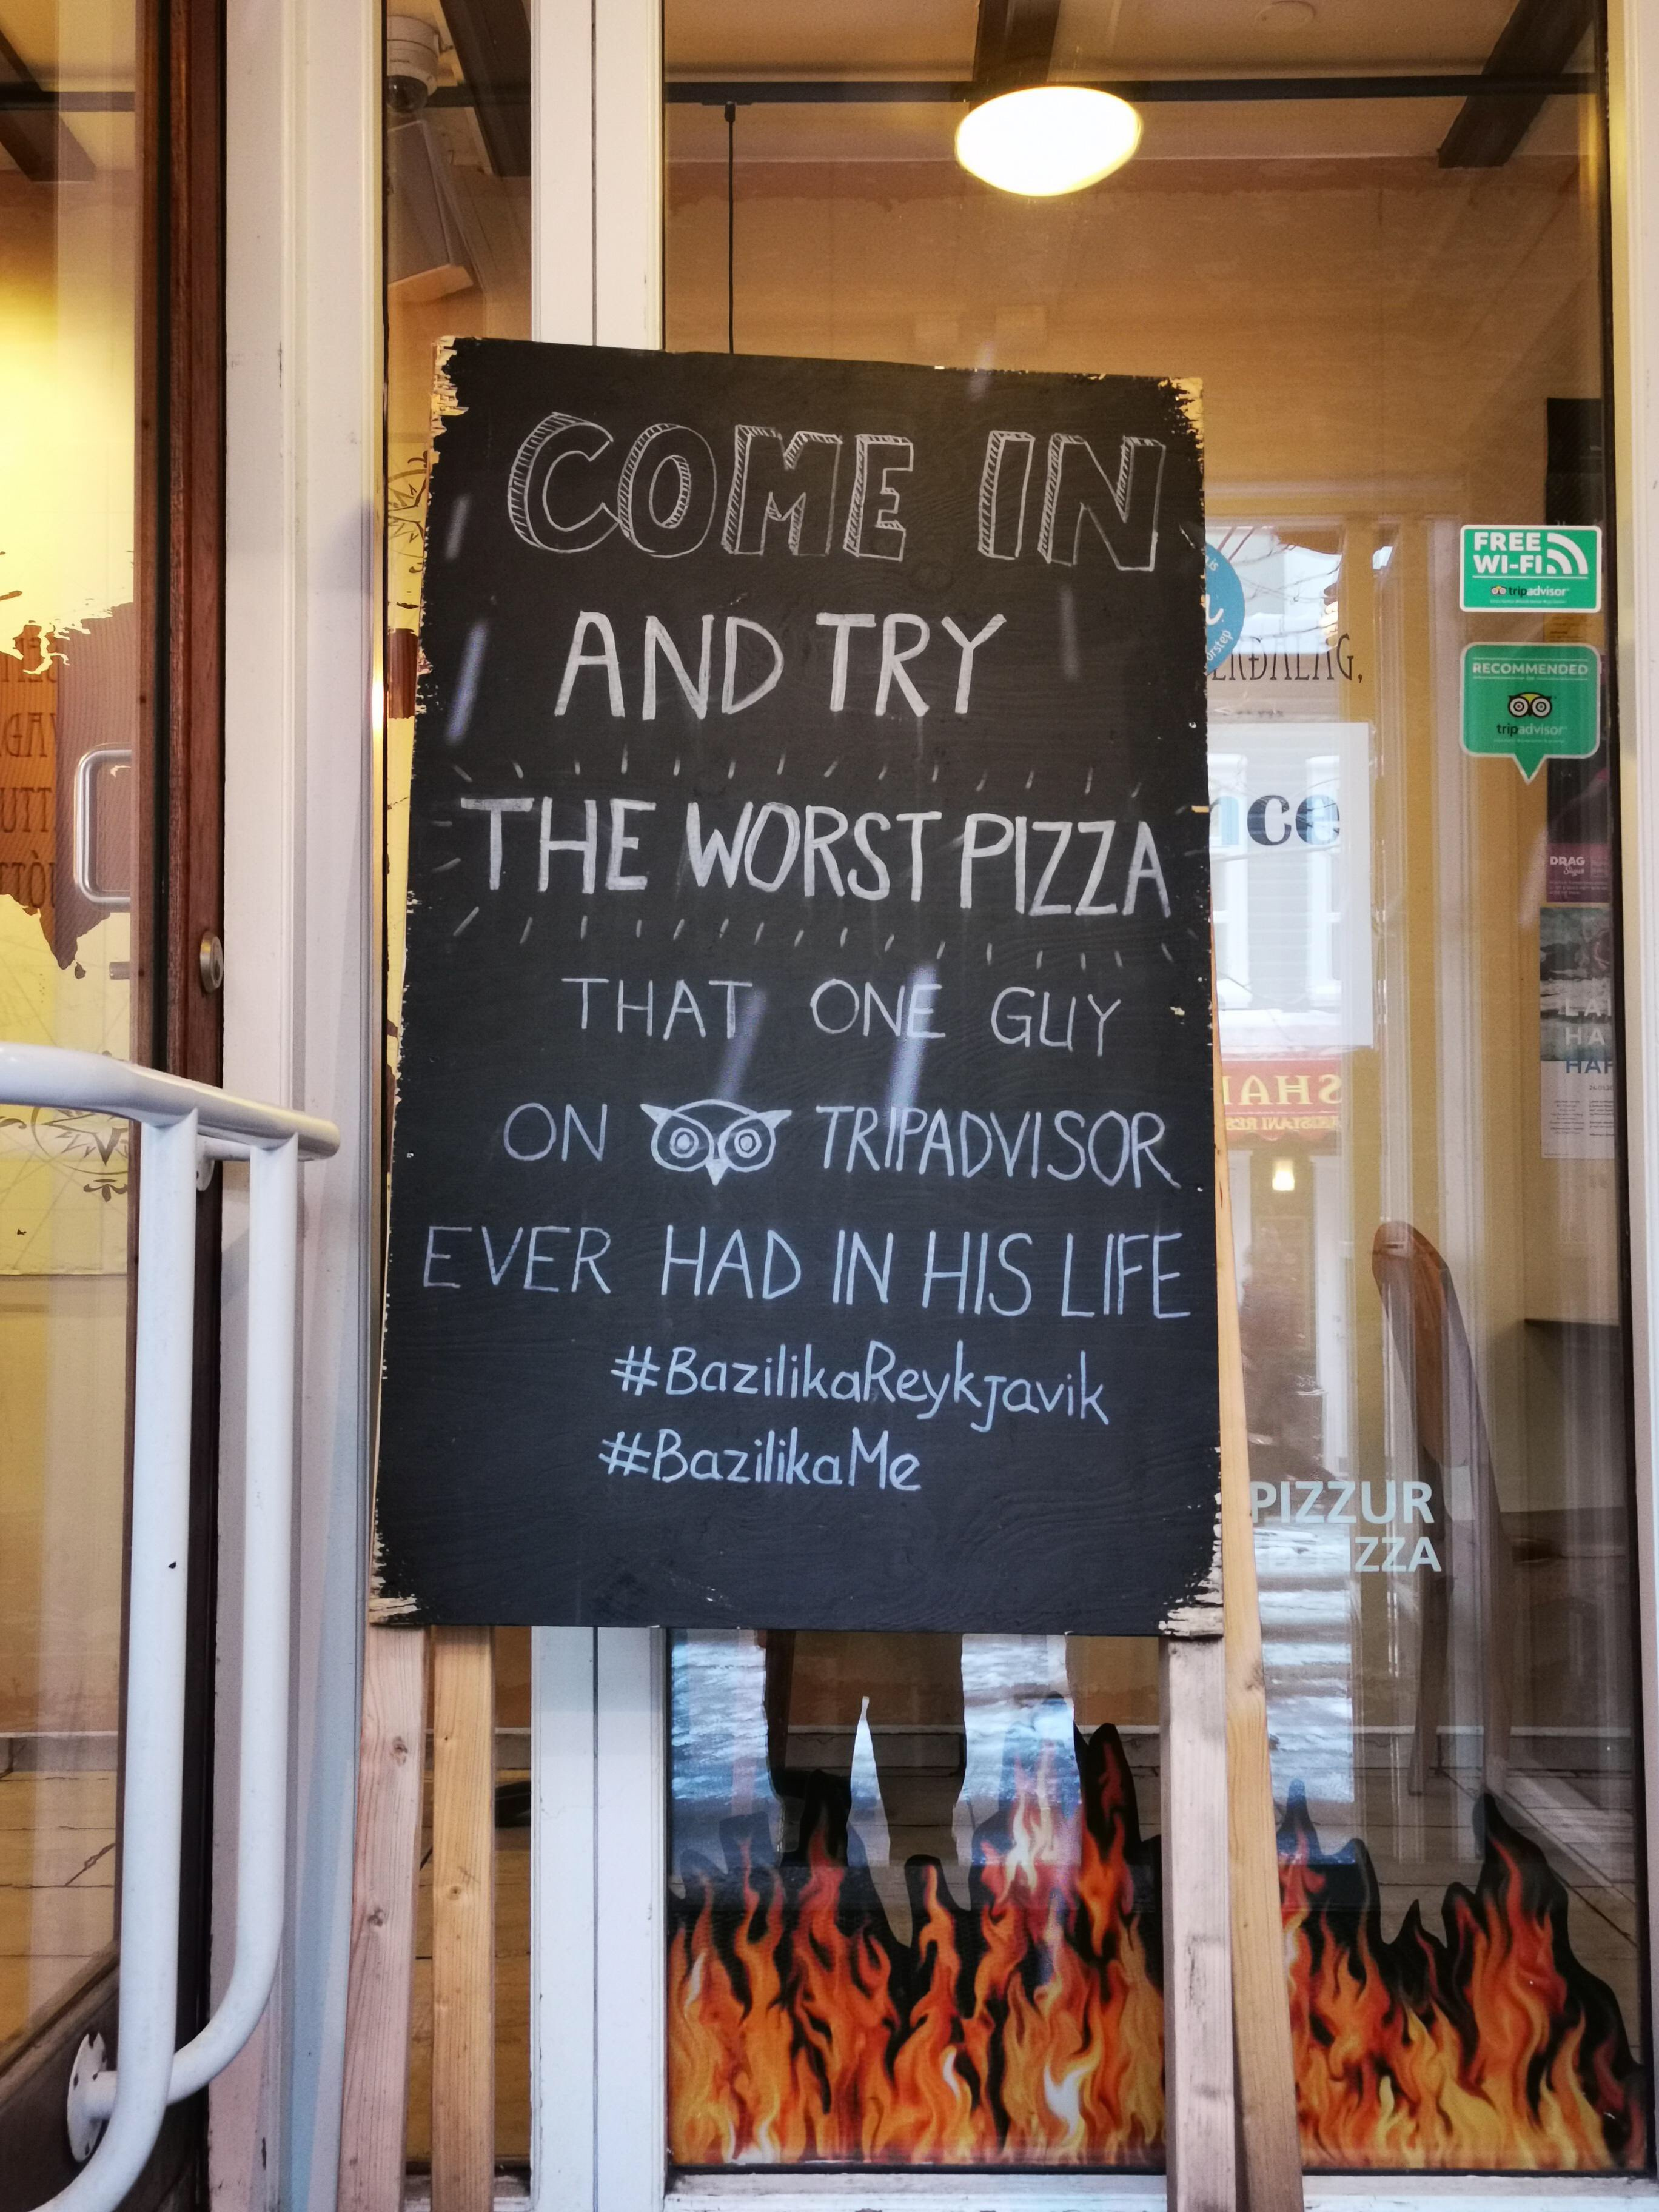 COME IN
AND TRY
THE WORST PIZZA
THAT ONE GUY
ON TRIPADVISOR
EVER HAD IN HIS LIFE
#BazilikaReykjavik
#BazilikaMe
FREE
WI-FI
tripadvisor
RECOMMENDED
tripadvisor
DRAG
PIZZUR